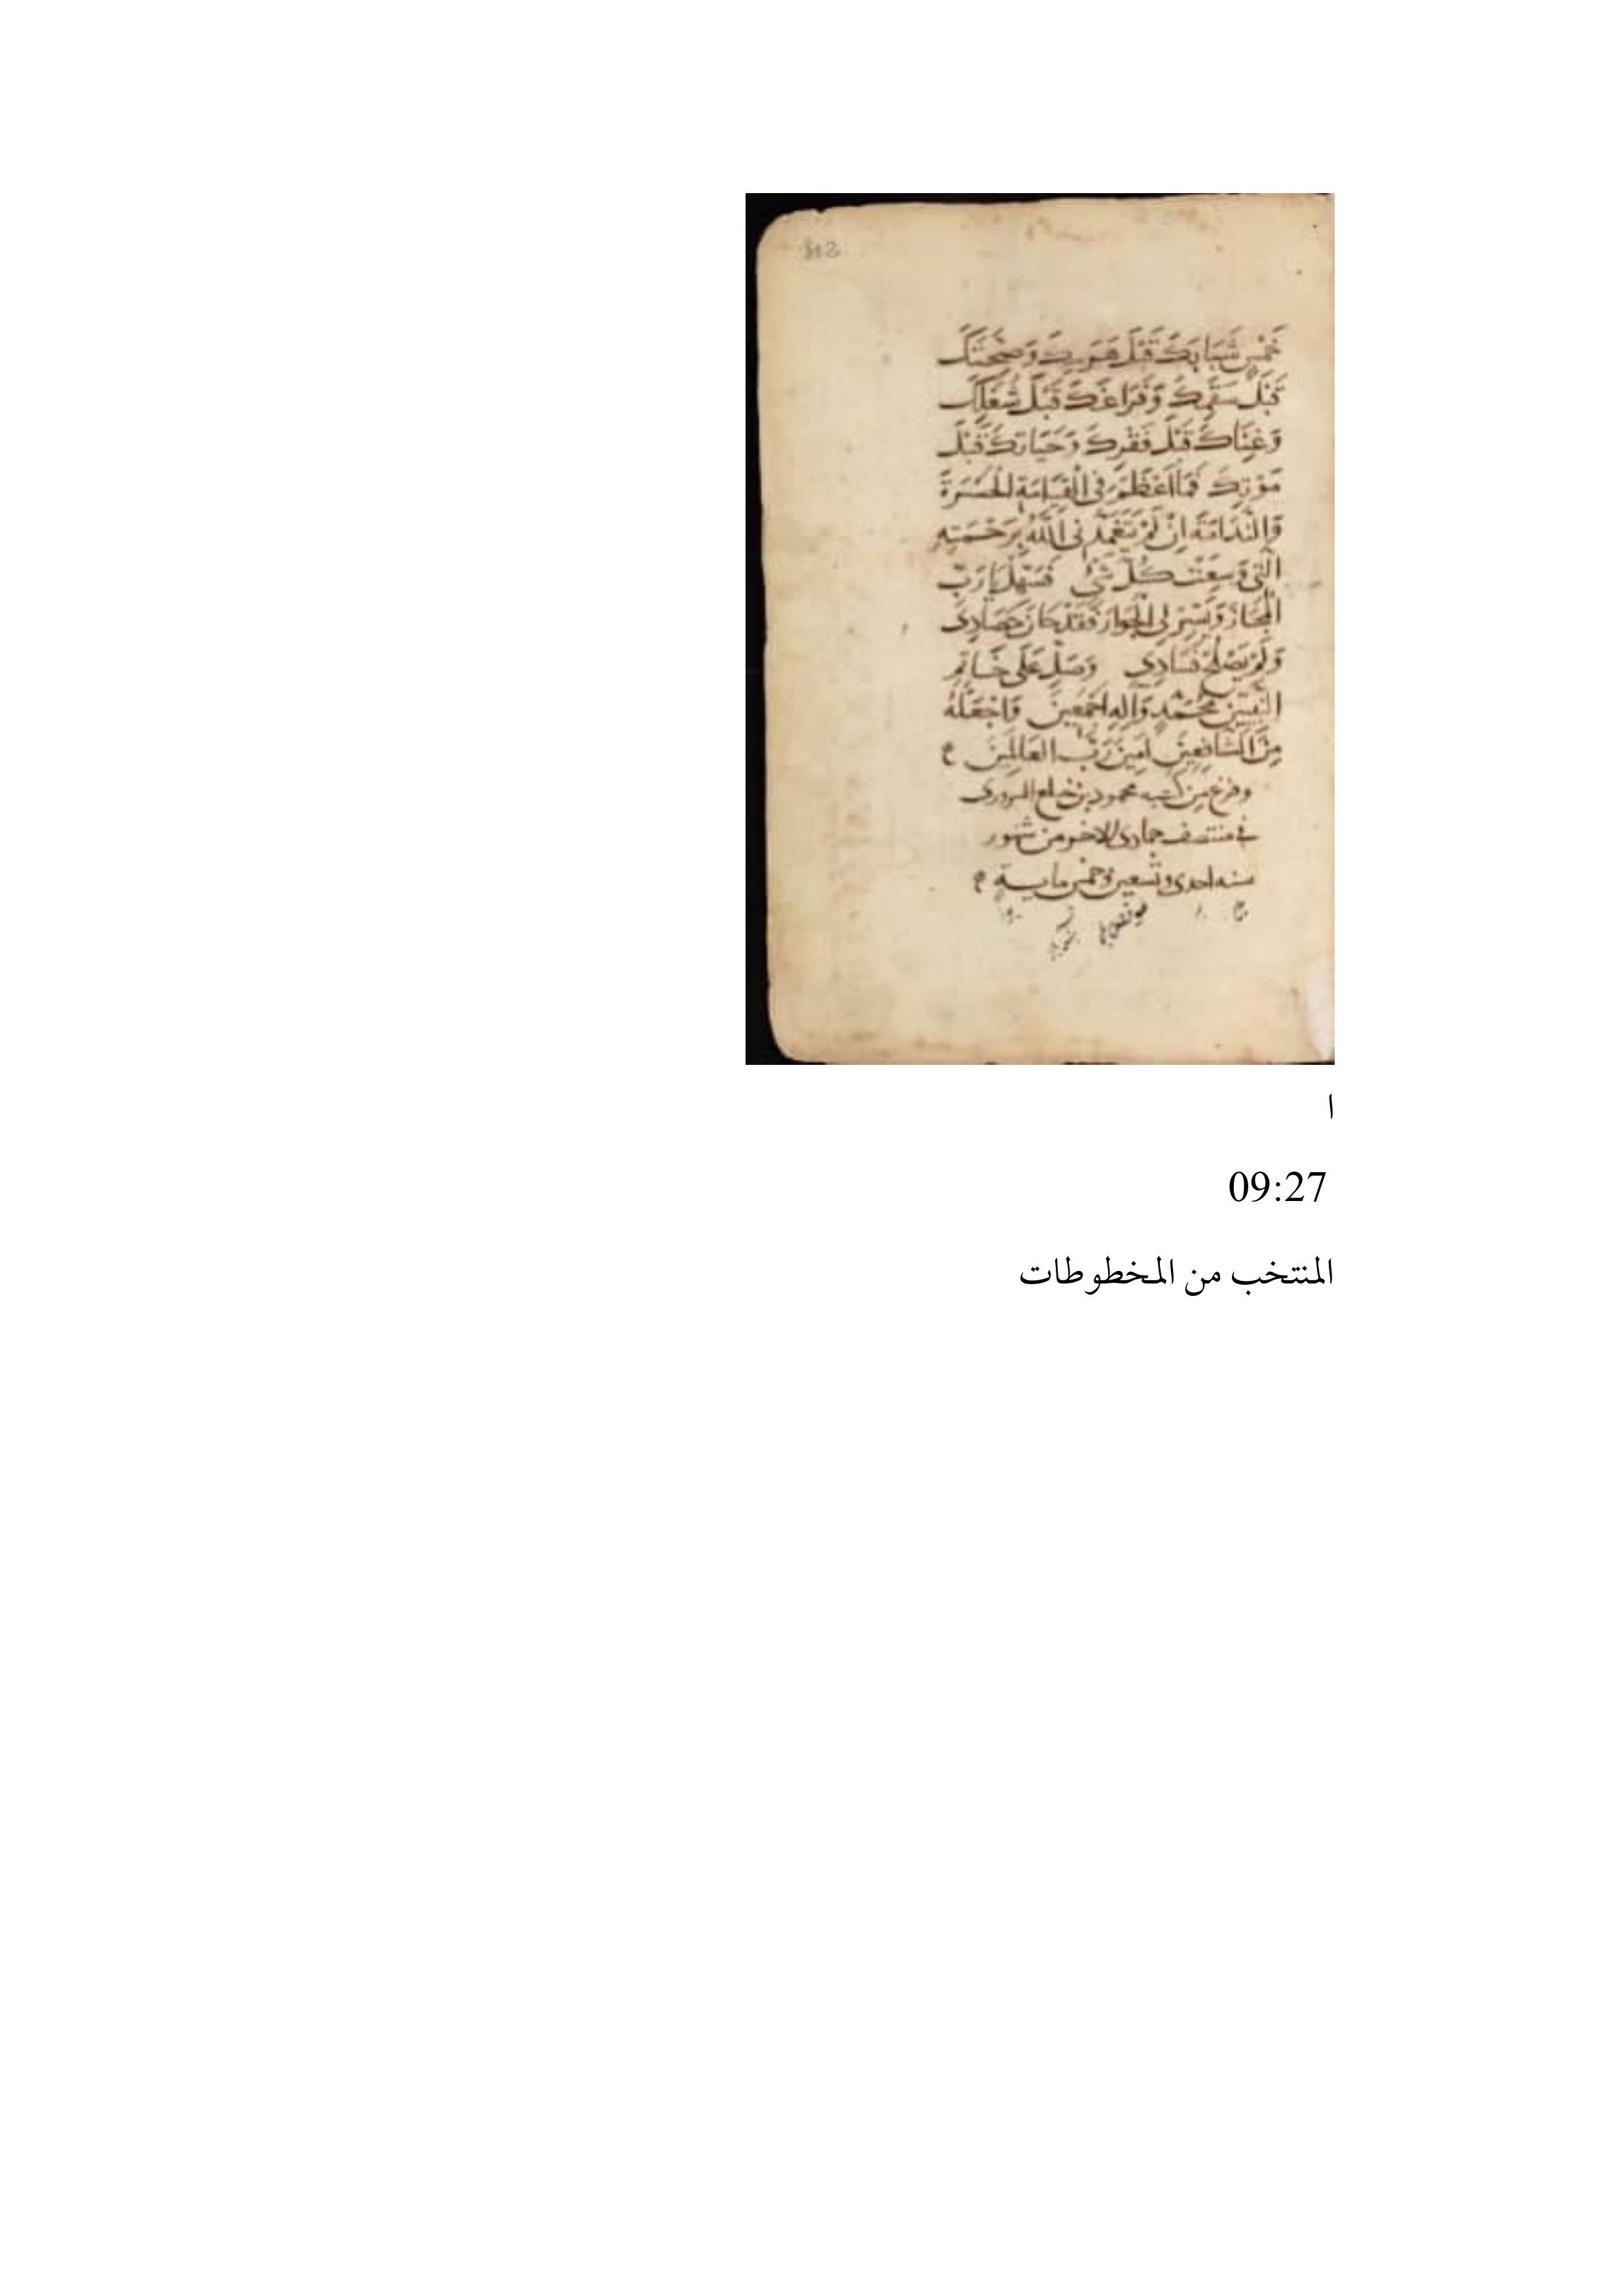 خَمْسٍ شَبَابَكَ قَبْلَ هَرَمِكَ وَصِحَّتَكَ
قَبْلَ سَقَمِكَ وَفَرَاغَكَ قَبْلَ شُغْلِكَ
وَغِنَاكَ قَبْلَ فَقْرِكَ وَحَيَاتَكَ قَبْلَ
مَوْتِكَ فَمَا أَعْظَمَ فِي الْقِيَامَةِ الْحَسْرَةَ
وَالنَّدَامَةَ إِنْ لَمْ يَتَغَمَّدْنِي اللَّهُ بِرَحْمَتِهِ
الَّتِي وَسِعَتْ كُلَّ شَيْءٍ فَسَهِّلْ يَا رَبِّ
الْمَجَازَ وَيَسِّرْ لِي الْجَوَازَ فَقَدْ حَانَ حَصَادِي
وَلَمْ يَصْلُحْ فَسَادِي وَصَلِّ عَلَى خَاتَمِ
النَّبِيِّينَ مُحَمَّدٍ وَآلِهِ أَجْمَعِينَ وَاجْعَلْهُ
مِنَ الشَّافِعِينَ آمِينَ رَبَّ الْعَالَمِينَ
وفرغ من كتبه محمود بن
في منتصف جمادى الاخر من شهور
سنه احدى وتسعين وخمس مايه
ا
09:27
المنتخب من المخطوطات